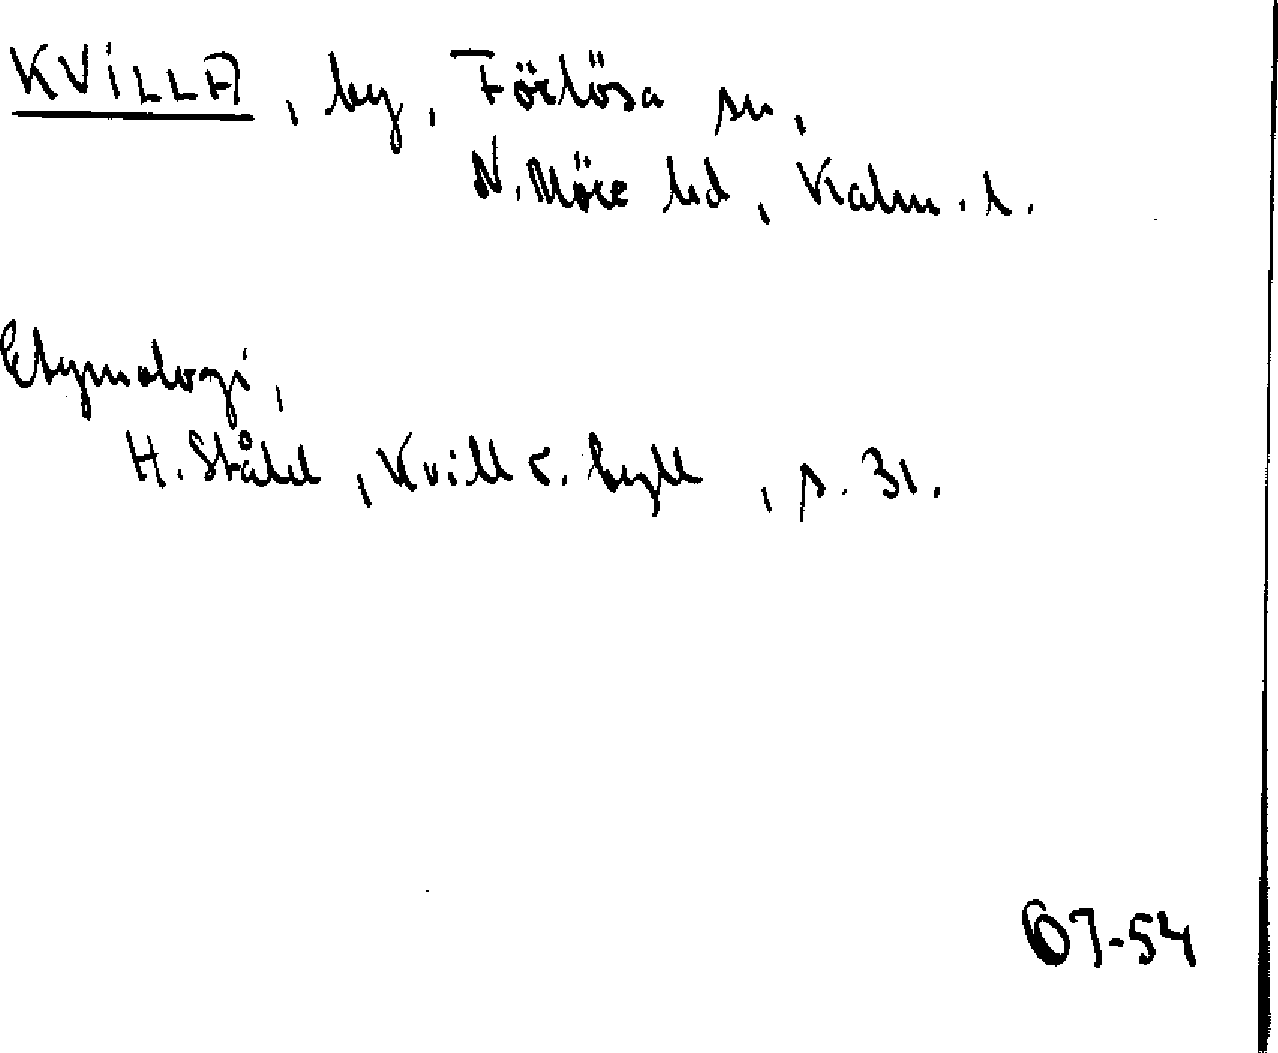 KVILLA, by, Förlösa sn,
N. Möre hd, Kalm. l.
Etymologi,
H. Ståhl, Kvill o. tyll, s. 31.
07-54